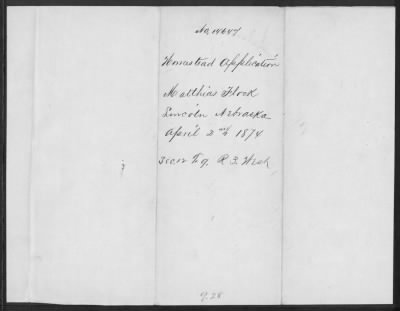 Homestead Application
Matthias Flock
Lincoln Nebraska
April 2nd 1874
R 3 West
9.28